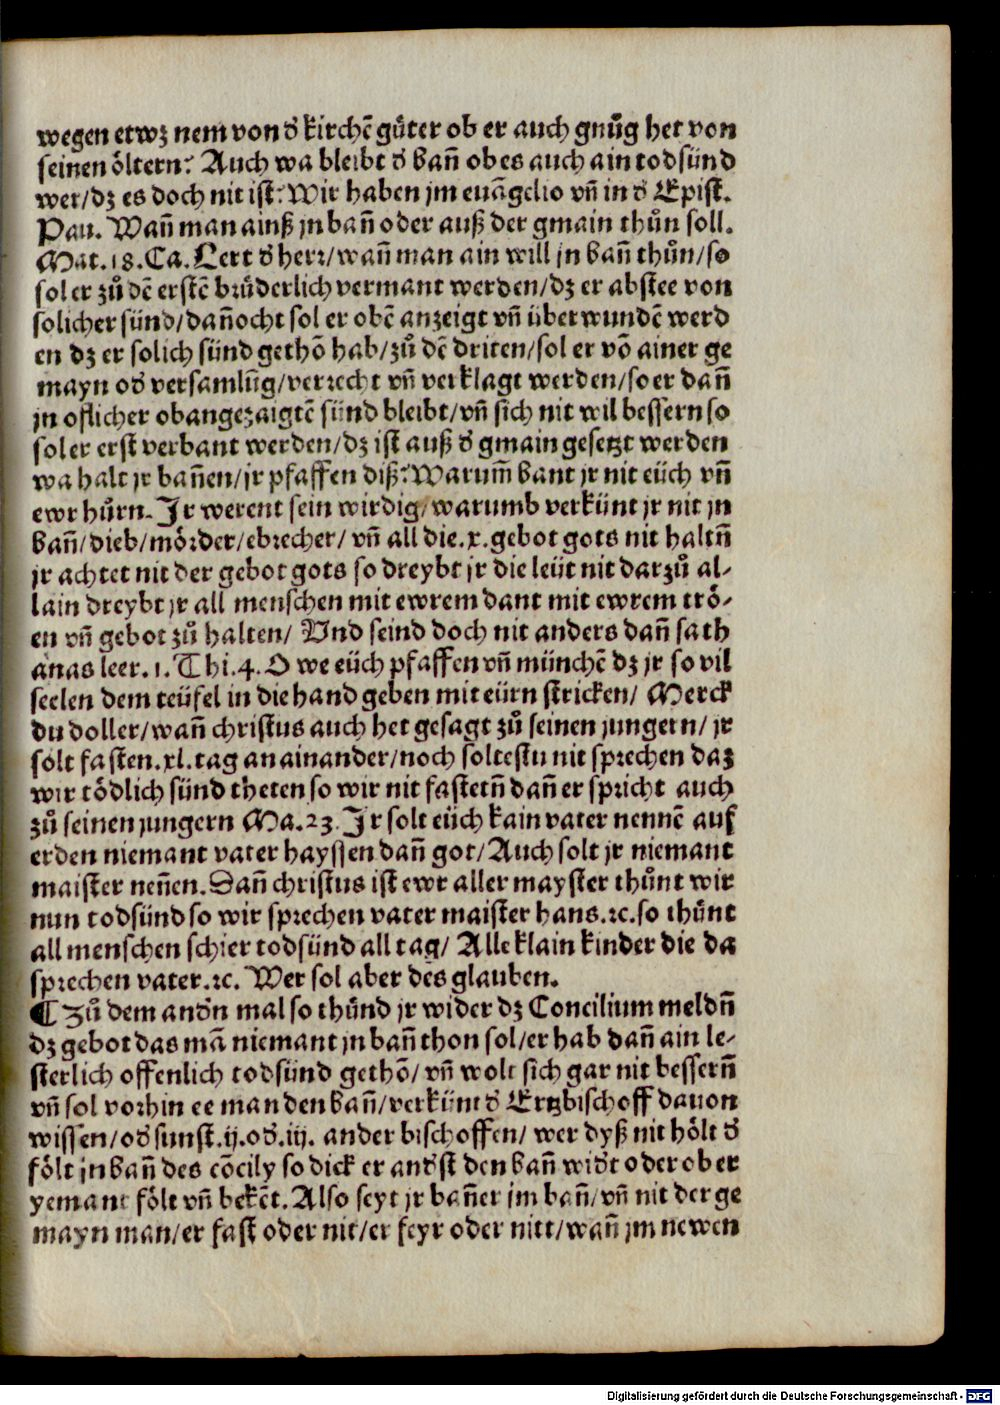 wegen etwz nem von d᷑ kirchẽ gůter ob er auch gnůg het von
seinen öltern: Auch wa bleibt d᷑ bañ ob es auch ain todsünd
wer/dz es doch nit ist: Wir haben jm euãgelio vñ in d᷑ Epist.
Pau. Wañ man ainß jn bañ oder auß der gmain thůn soll.
Mat. 18. Ca. Lert d᷑ herr/wañ man ain will jn bañ thůn/so
sol er zů dẽ erstẽ brůderlich vermant werden/dz er abstee von
solicher sünd/dañocht sol er obẽ anzeigt vñ überwundẽ werd
en dz er solich sünd gethõ hab/zů dẽ driten/sol er võ ainer ge
mayn od᷑ versamlũg/verrecht vñ verklagt werden/so er dañ
jn oflicher obangezaigtẽ sünd bleibt/vñ sich nit wil bessern so
sol er erst verbant werden/dz ist auß d᷑ gmain gesetzt werden
wa halt jr bañen/jr pfaffen diß: Warum̃ bant jr nit eüch vñ
ewr hůrn. Jr werent sein wirdig/warumb verkünt jr nit jn
bañ/dieb/mörder/ebrecher/vñ all die .x. gebot gots nit haltñ
jr achtet nit der gebot gots so dreybt jr die leüt nit darzů al-
lain dreybt jr all menschen mit ewrem dant mit ewrem trö-
en vñ gebot zů halten/ Vnd seind doch nit anders dañ sath
anas leer. 1. Thi. 4. O we eüch pfaffen vñ münchẽ dz jr so vil
seelen dem teüfel in die hand geben mit eürn stricken/ Merck
du doller/wañ christus auch het gesagt zů seinen jungern/ jr
solt fasten .xl. tag an ainander/noch soltestu nit sprechen daz
wir tödlich sünd theten so wir nit fastetñ dañ er spricht auch
zů seinen jungern Ma. 23. Jr solt eüch kain vater nennẽ auf
erden niemant vater hayssen dañ got/ Auch solt jr niemant
maister neñen. Dañ christus ist ewr aller mayster thůnt wir
nun todsünd so wir sprechen vater maister hans. ꝛc. so thůnt
all menschen schier todsünd all tag/ Alle klain kinder die da
sprechen vater. ꝛc. Wer sol aber des glauben.
¶ Zů dem and᷑n mal so thůnd jr wider dz Concilium meldñ
dz gebot das mã niemant jn bañ thon sol/er hab dañ ain le-
sterlich offenlich todsünd gethõ/ vñ wolt sich gar nit besserñ
vñ sol vorhin ee man den bañ/verkünt d᷑ Ertzbischoff dauon
wissen/od᷑ sunst .ij. od᷑ .iij. ander bischoffen/ wer dyß nit hölt d᷑
fölt jn bañ des cõcily so dick er and᷑st den bañ wid᷑t oder ob er
yemant fölt vñ bekẽt. Also seyt jr bañer jm bañ/vñ nit der ge
mayn man/er fast oder nit/er feyr oder nitt/wañ jm newen
Digitalisierung gefördert durch die Deutsche Forschungsgemeinschaft - DFG